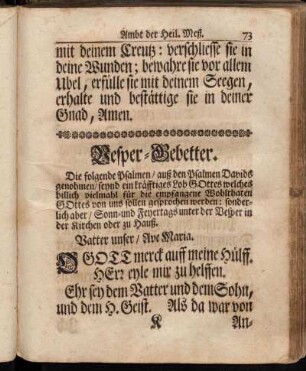 Ambt der Heil. Meß. 73
mit deinem Creutz: verschliesse sie in
deine Wunden; bewahre sie vor allem
Ubel, erfülle sie mit deinem Seegen,
erhalte und bestättige sie in deiner
Gnad, Amen.
Vesper-Gebetter.
Die folgende Psalmen/ auß den Psalmen Davids
genohmen/ seynd ein kräfftiges Lob GOttes welches
billich vielmahl für die empfangene Wohlthaten
GOttes von uns sollen gesprochen werden: sonder-
lich aber/ Sonn-und Feyertags unter der Vesper in
der Kirchen oder zu Hauß.
Vatter unser/ Ave Maria.
O GOTT merck auff meine Hülff.
HErr eyle mir zu helffen.
Ehr sey dem Vatter und dem Sohn,
und dem H. Geist. Als da war von
K An-